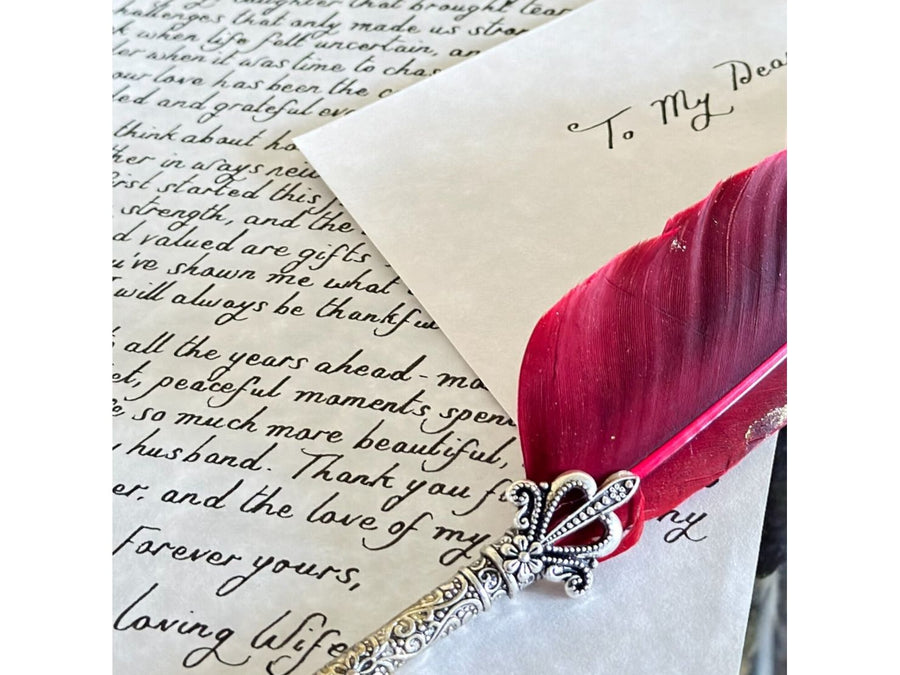 daughter that brought
challenges that only made us
when life felt uncertain,
when it was time to
our love has been the
and grateful
think about
in ways
first started this
strength, and the
valued are gifts
you've shown me what
I will always be thankful
all the years ahead -
peaceful moments,
so much more beautiful,
husband. Thank you
and the love of my
Forever yours,
loving Wife
To My Dear
my